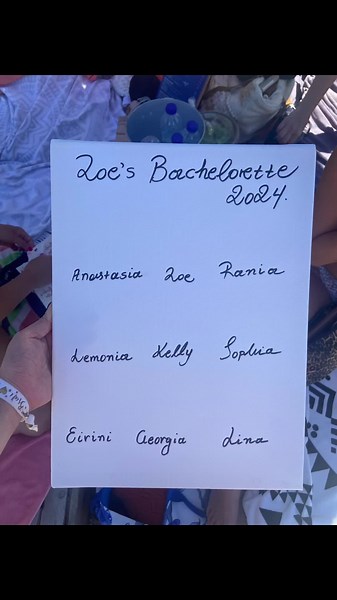 Zoe's Bachelorette
2024.
Anastasia Zoe Rania
Lemonia Kelly Sophia
Eirini Georgia Lina